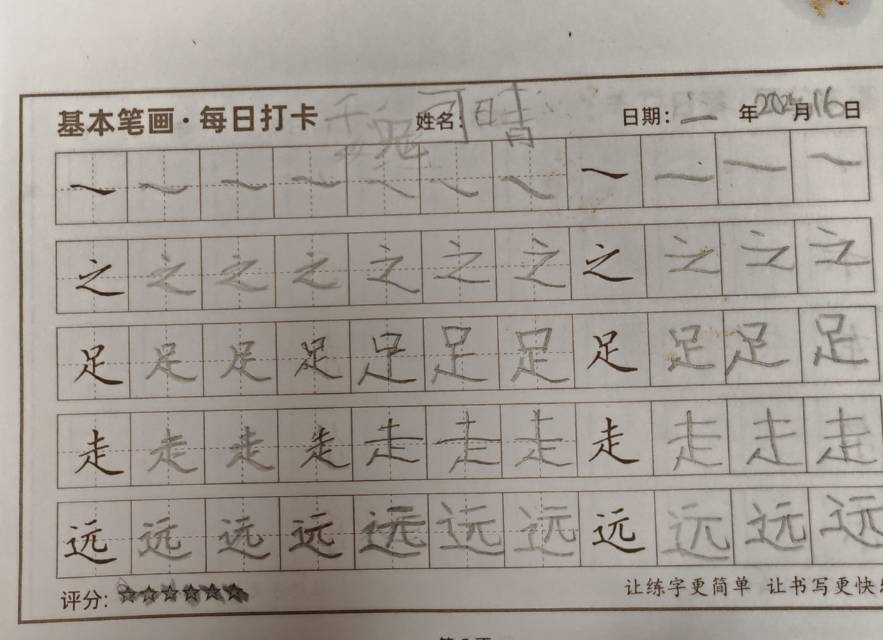 基本笔画·每日打卡 魏 姓名: 日晴 日期: 一 年 2025 月 16 日
㇏ ㇏ ㇏ ㇏ ㇏ ㇏ ㇏ ㇏ ㇏ ㇏ ㇏
之 之 之 之 之 之 之 之 之 之 之
足 足 足 足 足 足 足 足 足 足 足
走 走 走 走 走 走 走 走 走 走 走
远 远 远 远 远 远 远 远 远 远 远
评分: ☆☆☆☆☆☆ 让练字更简单 让书写更快